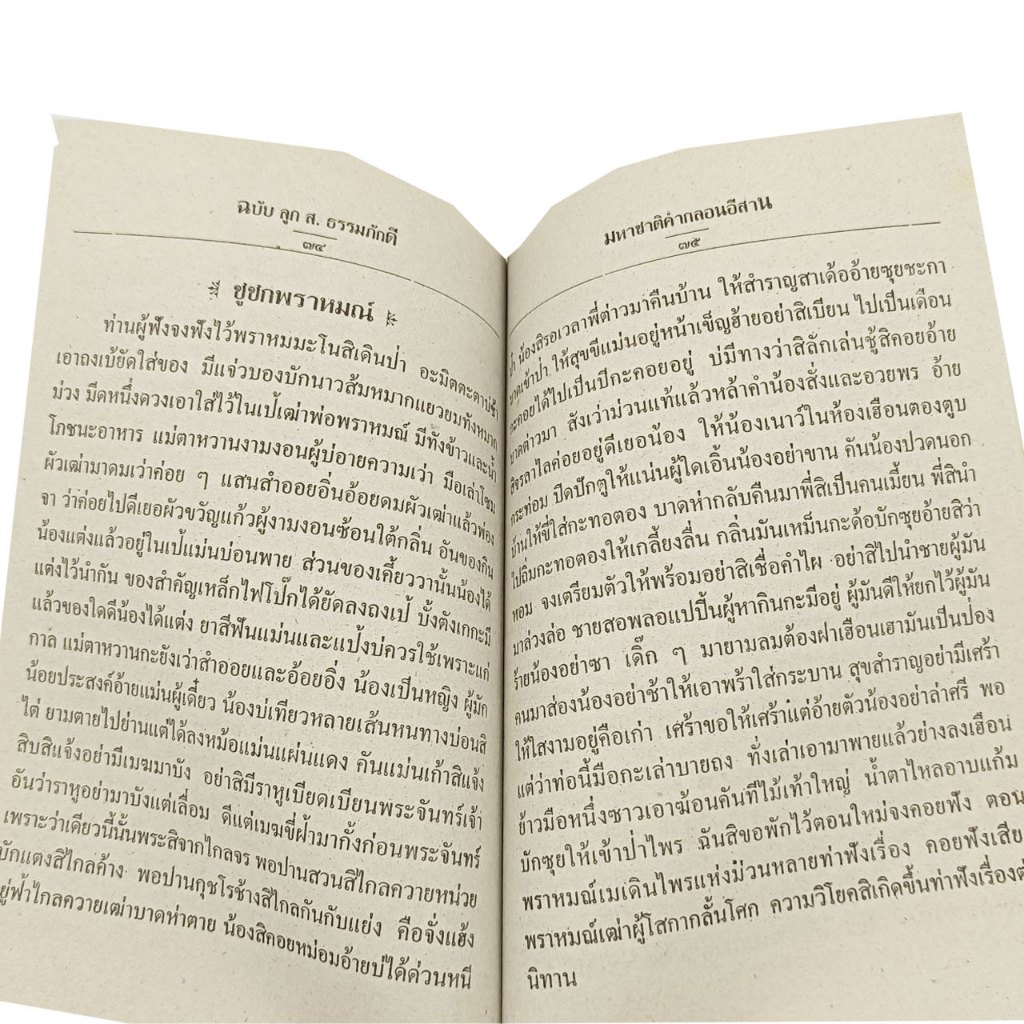 ฉบับ ลูก ส. ธรรมภักดี
๗๔
ชูชกพราหมณ์
ท่านผู้ฟังจงฟังไว้พราหมมะโนสิเดินป่า อะมิตตะดาบ่ช้า
เอาถงเบ้ยัดใส่ของ มีแจ่วบองบักนาวส้มหมากแยวยมทั้งหมาก
ม่วง มีดหนึ่งดวงเอาใส่ไว้ในเป้เฒ่าพ่อพราหมณ์ มีทั้งข้าวและน้ำ
โภชนะอาหาร แม่ตาหวานงามงอนผู้บ่อายความเว่า มือเล่าโซม
ผัวเฒ่ามาดมเว่าค่อย ๆ แสนสำออยอิ่นอ้อยดมผัวเฒ่าแล้วพ่อง
จา ว่าค่อยไปดีเยอผัวขวัญแก้วผู้งามงอนซ้อนใต้กลิ่น อันของกิน
น้องแต่งแล้วอยู่ในเป้แม่นบ่อนพาย ส่วนของเคี้ยววานั้นน้องได้
แต่งไว้นำกัน ของสำคัญเหล็กไฟโป๊กได้ยัดลงถงเป้ บั้งตังเกกะมี
แล้วของใดดีน้องได้แต่ง ยาสีฟันแม่นและแป้งบ่ควรใช้เพราะแก่
กาล แม่ตาหวานกะยังเว่าสำออยและอ้อยอิ่ง น้องเป็นหญิง ผู้มัก
น้อยประสงค์อ้ายแม่นผู้เดี๋ยว น้องบ่เทียวหลายเส้นหนทางบ่อนสิ
ไต่ ยามตายไปย่านแต่ได้ลงหม้อแม่นแผ่นแดง คันแม่นเก้าสิแจ้ง
สิบสิแจ้งอย่ามีเมฆมาบัง อย่าสิมีราหูเบียดเบียนพระจันทร์เจ้า
อันว่าราหูอย่ามาบังแต่เลื่อม ดีแต่เมฆขี่ฝ้ามากั้งก่อนพระจันทร์
เพราะว่าเดียวนี้นั้นพระสิจากไกลจร พอปานสวนสิไกลควายหน่วย
บักแตงสิไกลค้าง พอปานกุชโรช้างสิไกลกันกับแย่ง คือจั่งแฮ้ง
ยู่ฟ้าไกลควายเฒ่าบาดห่าตาย น้องสิคอยหม่อมอ้ายบ่ได้ด่วนหนี
มหาชาติคำกลอนอีสาน
๗๕
น้ำ น้องสิรอเวลาพี่ต่าวมาคืนบ้าน ให้สำราญสาเด้ออ้ายซุยชะกา
บาดเข้าป่า ให้สุขขีแม่นอยู่หน้าเข็ญฮ้ายอย่าสิเบียน ไปเป็นเดือน
กะคอยได้ไปเป็นปีกะคอยอยู่ บ่มีทางว่าสิลักเล่นชู้สิคอยอ้าย
บาดต่าวมา สังเว่าม่วนแท้แล้วหล้าคำน้องสั่งและอวยพร อ้าย
สิจรลาไลค่อยอยู่ดีเยอน้อง ให้น้องเนาว์ในห้องเฮือนตองตูบ
กระท่อม ปิดปักตูให้แน่นผู้ใดเอิ้นน้องอย่าขาน คันน้องปวดนอก
บ้านให้ขี่ใส่กะทอตอง บาดห่ากลับคืนมาพี่สิเป็นคนเมี้ยน พี่สินำ
ไปลิ่มกะทอตองให้เกลี้ยงลื่น กลิ่นมันเหม็นกะด้อบักซุยอ้ายสิว่า
หอม จงเตรียมตัวให้พร้อมอย่าสิเชื่อคำไผ อย่าสิไปนำชายผู้มัน
มาล่วงล่อ ชายสอพลอแปปิ้นผู้หากินกะมีอยู่ ผู้มันดีให้ยกไว้ผู้มัน
ร้ายน้องอย่าซา เดิ๊ก ๆ มายามลมต้องฝาเฮือนเฮามันเป็นป่อง
คนมาส่องน้องอย่าช้าให้เอาพร้าใส่กระบาน สุขสำราญอย่ามีเศร้า
ให้ใสงามอยู่คือเก่า เศร้าขอให้เศร้าแต่อ้ายตัวน้องอย่าล่าศรี พอ
แต่ว่าท่อนี้มือกะเล่าบายถง ทั่งเล่าเอามาพายแล้วย่างลงเฮือน
ย้าวมือหนึ่งซาวเอาฆ้อนคันทีไม้เท้าใหญ่ น้ำตาไหลอาบแก้ม
บักซุยให้เข้าป่าไพร ฉันสิขอพักไว้ตอนใหม่จงคอยฟัง ตอน
พราหมณ์เมเดินไพรแห่งม่วนหลายท่าฟังเรื่อง คอยฟังเสีย
พราหมณ์เฒ่าผู้โสกากลั้นโศก ความวิโยคสิเกิดขึ้นท่าฟังเรื่องต่
นิทาน